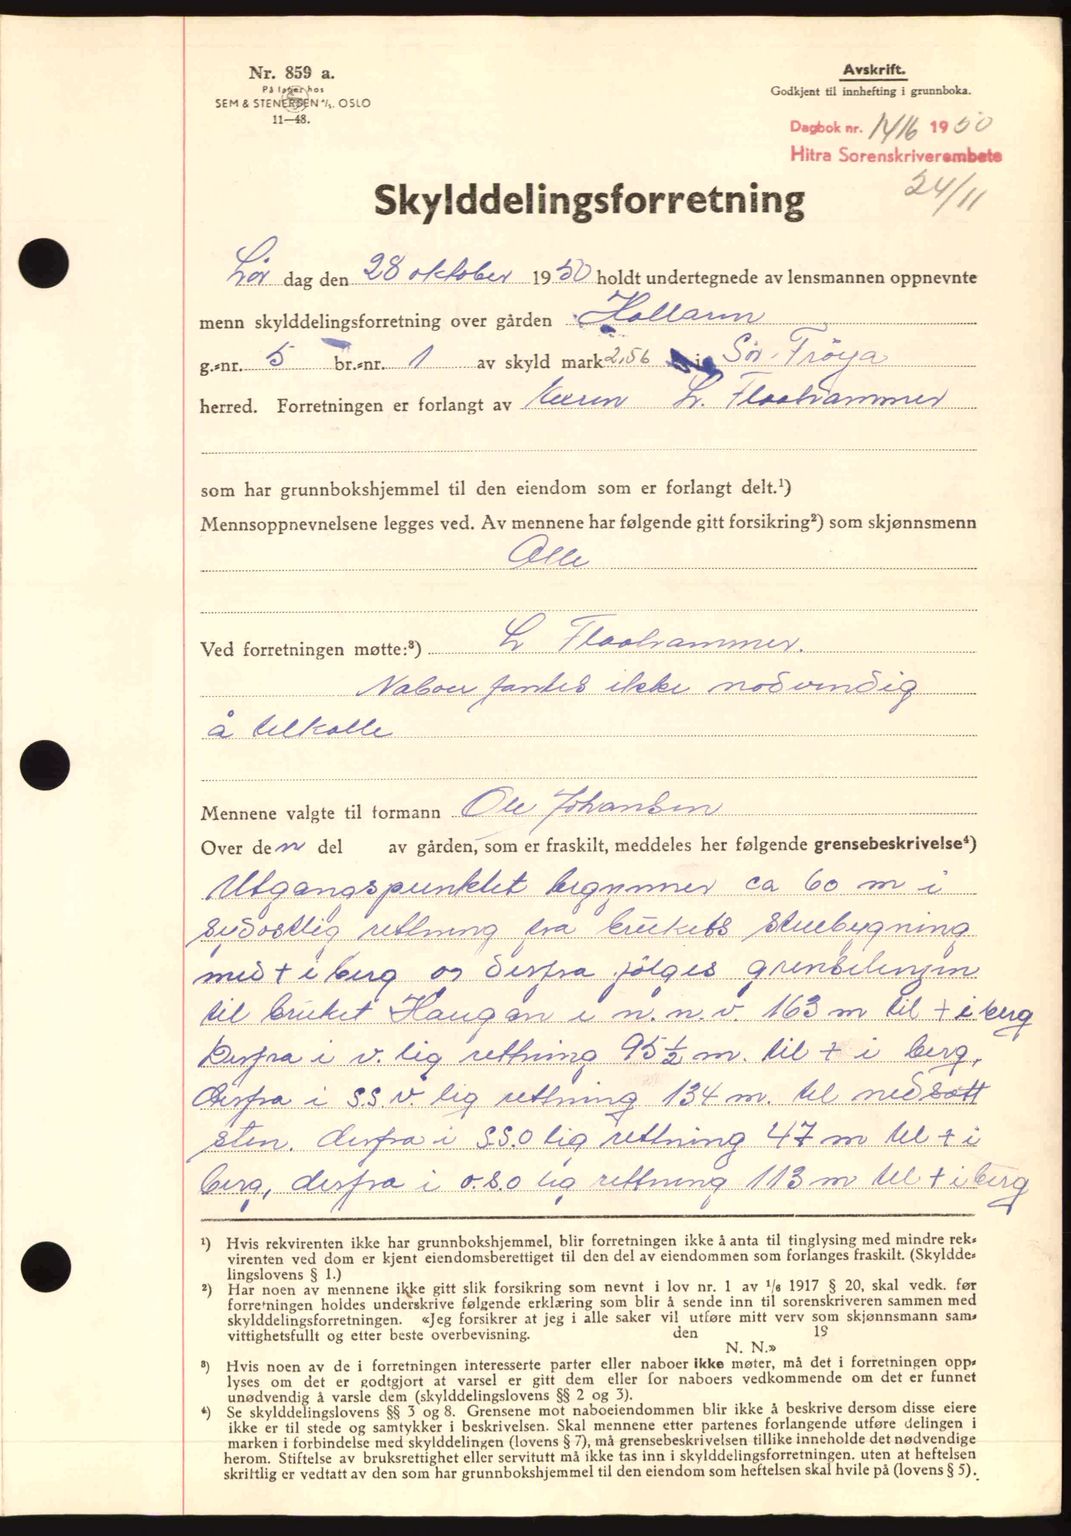 Nr. 859 a.
På lager hos
SEM & STENERSEN A/S. OSLO
11—48.
Avskrift.
Godkjent til innhefting i grunnboka.
Dagbok nr. 1416 1950
Hitra Sorenskriverembete
24/11
Skylddelingsforretning
Lør dag den 28 oktober 1950 holdt undertegnede av lensmannen oppnevnte
menn skylddelingsforretning over gården Hallaren
g.-nr. 5 br.-nr. 1 av skyld mark 2,56 i Sør-Frøya
herred. Forretningen er forlangt av L. Flaahammer
som har grunnbokshjemmel til den eiendom som er forlangt delt.¹)
Mennsoppnevnelsene legges ved. Av mennene har følgende gitt forsikring²) som skjønnsmenn
Alle
Ved forretningen møtte:³) L Flaahammer.
Naboer fantes ikke nødvendig
å tilkalle
Mennene valgte til formann Ole Johansen
Over den del av gården, som er fraskilt, meddeles her følgende grensebeskrivelse⁴)
Utgangspunktet begynner ca 60 m i
sydøstlig rettning fra brukets stuebygning
med + i berg og derfra følges grenselinjen
til bruket Haugan i n.n.v. 163 m til + i berg
Derfra i v.lig rettning 95 ½ m. til + i berg,
derfra i s.s.v. lig rettning 134 m. til nedsatt
sten. derfra i s.s.o lig rettning 47 m til + i
berg, derfra i o.s.o lig rettning 113 m til + i berg
¹) Hvis rekvirenten ikke har grunnbokshjemmel, blir forretningen ikke å anta til tinglysing med mindre rek-
virenten ved dom er kjent eiendomsberettiget til den del av eiendommen som forlanges fraskilt. (Skyldde-
lingslovens § 1.)
²) Har noen av mennene ikke gitt slik forsikring som nevnt i lov nr. 1 av 1/6 1917 § 20, skal vedk. før
forretningen holdes underskrive følgende erklæring som blir å sende inn til sorenskriveren sammen med
skylddelingsforretningen. «Jeg forsikrer at jeg i alle saker vil utføre mitt verv som skjønnsmann sam-
vittighetsfullt og etter beste overbevisning. den 19
N. N.»
³) Hvis noen av de i forretningen interesserte parter eller naboer ikke møter, må det i forretningen opp-
lyses om det er godtgjort at varsel er gitt dem eller for naboers vedkommende om det er funnet
unødvendig å varsle dem (skylddelingslovens §§ 2 og 3).
⁴) Se skylddelingslovens §§ 3 og 8. Grensene mot naboeiendommen blir ikke å beskrive dersom disse eiere
ikke er til stede og samtykker i beskrivelsen. Skal mennene etter partenes forlangende utføre delingen i
marken i forbindelse med skylddelingen (lovens § 7), må grensebeskrivelsen tillike inneholde det nødvendige
herom. Stiftelse av bruksrettighet eller servitutt må ikke tas inn i skylddelingsforretningen, uten at heftelsen
skriftlig er vedtatt av den som har grunnbokshjemmel til den eiendom som heftelsen skal hvile på (lovens § 5).